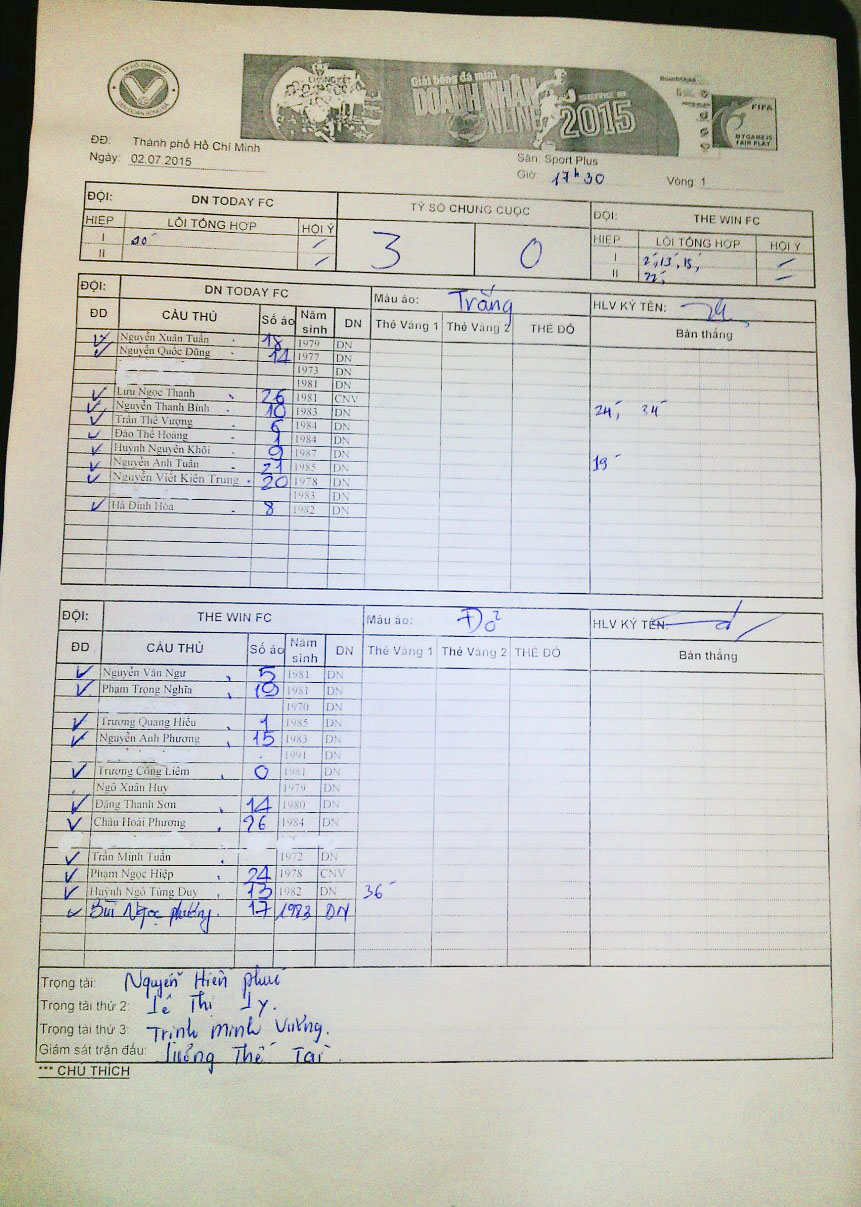 TP HỒ CHÍ MINH
LIÊN ĐOÀN BÓNG ĐÁ
Giải bóng đá mini
DOANH NHÂN
NLINE 2015
FIFA
MY GAME IS
FAIR PLAY
ĐĐ: Thành phố Hồ Chí Minh
Ngày: 02.07.2015
Sân: Sport Plus
Giờ: 17h30 Vòng: 1
ĐỘI: DN TODAY FC TỶ SỐ CHUNG CUỘC ĐỘI: THE WIN FC
HIỆP LỖI TỔNG HỢP HỘI Ý 3 0 HIỆP LỖI TỔNG HỢP HỘI Ý
I I 2', 13', 15',
II II
ĐỘI: DN TODAY FC Màu áo: Trắng HLV KÝ TÊN:
ĐD CẦU THỦ Số áo Năm sinh DN Thẻ Vàng 1 Thẻ Vàng 2 THẺ ĐỎ Bàn thắng
Nguyễn Xuân Tuấn 18 1979 DN
Nguyễn Quốc Dũng 14 1977 DN
1973 DN
1981 DN
Lưu Ngọc Thanh 26 1981 CNV
Nguyễn Thanh Bình 10 1983 DN 24', 34'
Trần Thế Vượng 6 1984 DN
Đào Thế Hoàng 1 1984 DN
Huỳnh Nguyên Khôi 9 1987 DN
Nguyễn Anh Tuấn 21 1985 DN 19'
Nguyễn Viết Kiên Trung 20 1978 DN
1983 DN
Hà Đình Hòa 8 1982 DN
ĐỘI: THE WIN FC Màu áo: Đỏ HLV KÝ TÊN:
ĐD CẦU THỦ Số áo Năm sinh DN Thẻ Vàng 1 Thẻ Vàng 2 THẺ ĐỎ Bàn thắng
Nguyễn Văn Ngư 5 1981 DN
Phạm Trọng Nghĩa 19 1981 DN
1970 DN
Trương Quang Hiếu 1 1985 DN
Nguyễn Anh Phương 15 1983 DN
1991 DN
Trương Công Liêm 0 1981 DN
Ngô Xuân Huy 1979 DN
Đặng Thanh Sơn 14 1980 DN
Châu Hoài Phương 26 1984 DN
Trần Minh Tuấn 1972 DN
Phạm Ngọc Hiệp 24 1978 CNV
Huỳnh Ngô Tùng Duy 13 1982 DN 36'
Bùi Ngọc Phương 17 1983 DN
Trọng tài: Nguyễn Hiền Phúc
Trọng tài thứ 2: Lê Thị Ly.
Trọng tài thứ 3: Trịnh Minh Vương.
Giám sát trận đấu: Lương Thế Tài.
*** CHÚ THÍCH